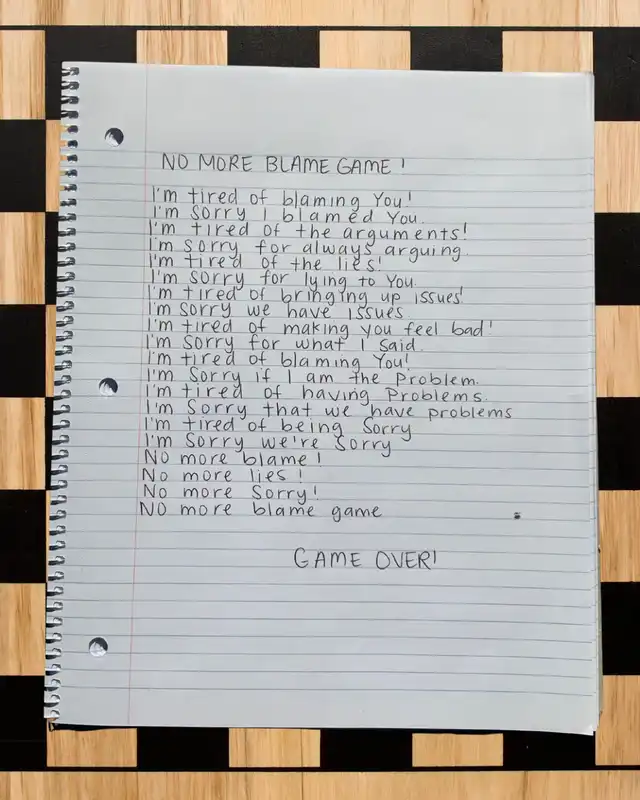 NO MORE BLAME GAME!
I'm tired of blaming You!
I'm Sorry I blamed You.
I'm tired of the arguments!
I'm sorry for always arguing.
I'm tired of the lies!
I'm sorry for lying to You.
I'm tired of bringing up issues!
I'm Sorry we have issues.
I'm tired of making you feel bad!
I'm Sorry for what I said.
I'm tired of blaming You!
I'm Sorry if I am the Problem.
I'm tired of having Problems.
I'm Sorry that we have problems
I'm tired of being Sorry
I'm Sorry we're Sorry
No more blame!
No more lies!
No more Sorry!
No more blame game
GAME OVER!